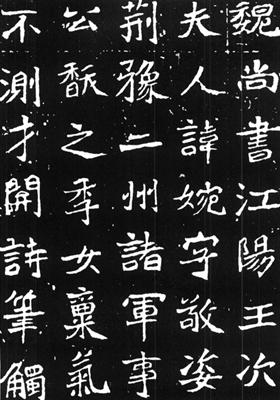 魏尚書江陽王次
夫人諱婉字敬姿
荆豫二州諸軍事
公馛之季女稟氣
不測才開詩筆觸